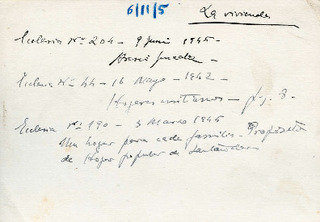 6/11/5
La vivienda
Ecclesia Nº 204 - 9 Junio 1945 -
Ecclesia Nº 44 - 16 Mayo - 1942 -
Hogares cristianos - pg. 3 -
Ecclesia Nº 190 - 3 Marzo 1945
Un hogar para cada familia - Propósito
de Hogar popular de Santander